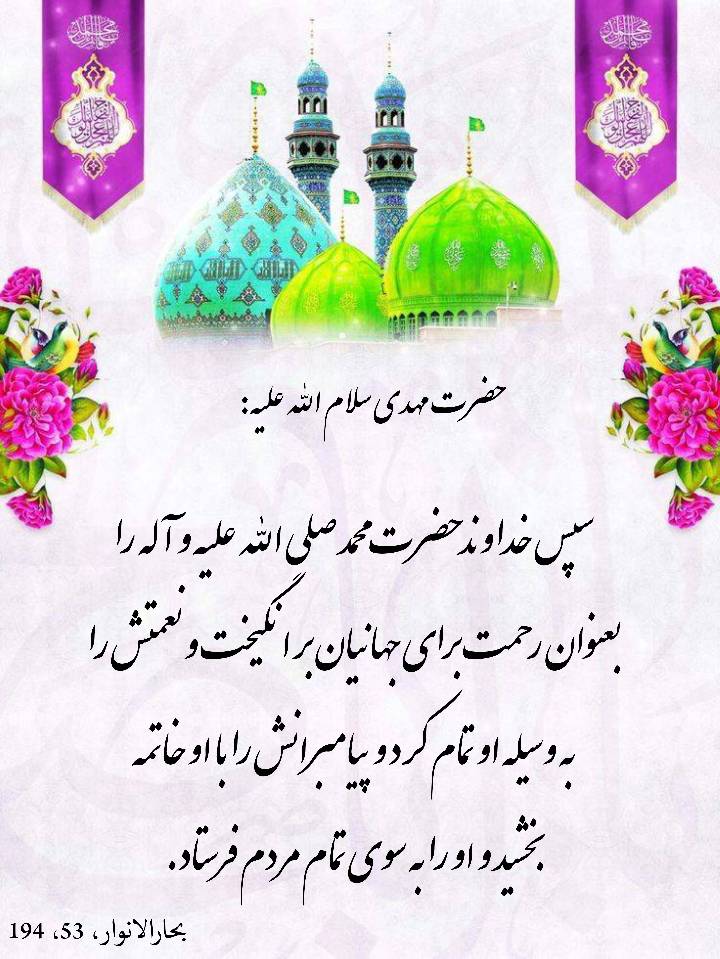 حضرت مهدی سلام الله علیه:
سپس خداوند حضرت محمد صلی الله علیه و آله را
بعنوان رحمت برای جهانیان برانگیخت و نعمتش را
به وسیله او تمام کرد و پیامبرانش را با او خاتمه
بخشید و او را به سوی تمام مردم فرستاد.
بحارالانوار، 53، 194